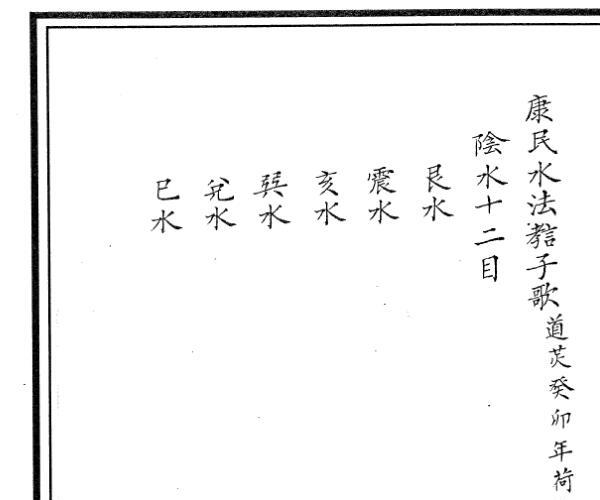 康民水法子歌道炗癸卯年荷
陰水十二目
艮水
震水
亥水
巽水
兌水
巳水